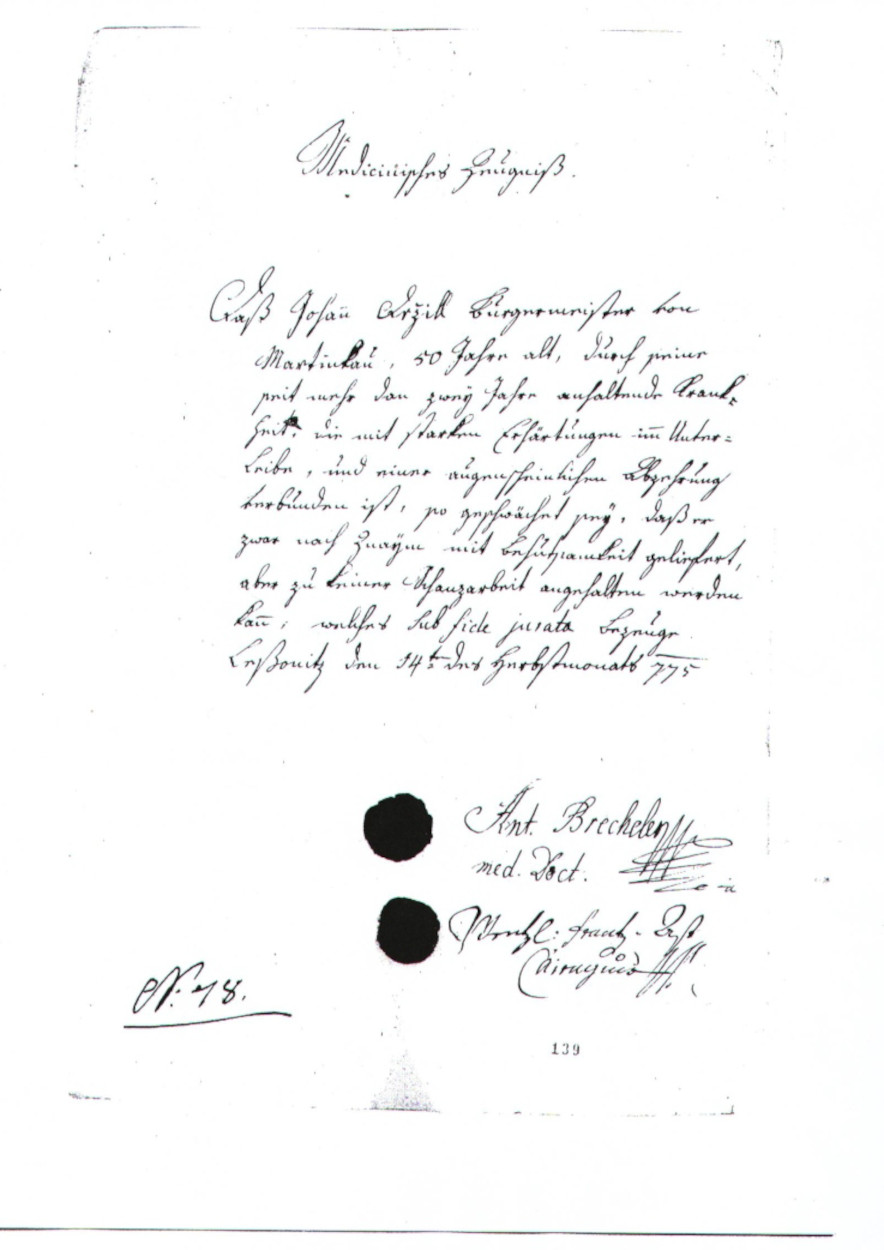 Medicinisches Zeugniß.
Daß Johañ Kržill Bürgermeister von
Martinkau, 50 Jahre alt, durch seine
seit mehr dan zwey Jahre anhaltende Krank-
heit, die mit starken Erhärtungen im Unter=
Leibe, und einer augenscheinlichen Abzehrung
verbunden ist, so geschwächet sey, daß er
zwar nach Znaym mit behutsamkeit geliefert,
aber zu keiner Schanzarbeit angehalten werden
kañ; welches sub fide jurata bezeuge.
Leßonitz den 14t des Herbstmonats 775
Ant. Brechelen
med. Doct.
Wentzl: Frantz
Chirurgus
N: 78.
139